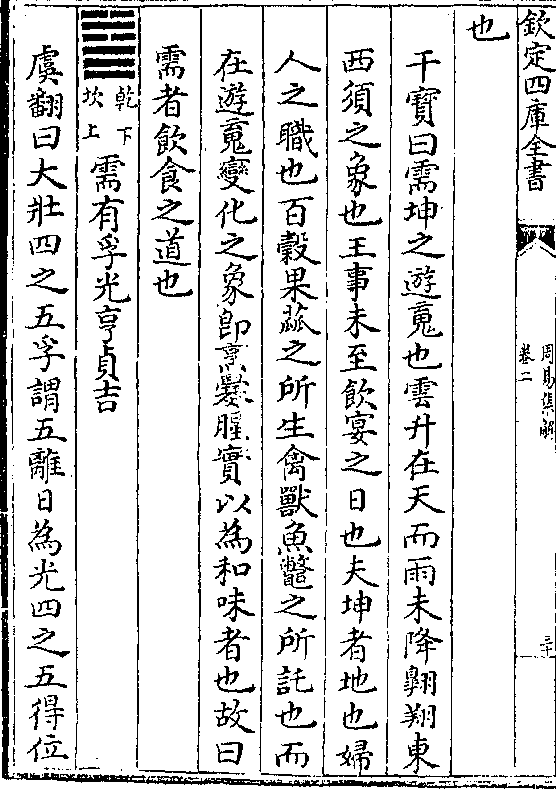 欽定四庫全書
周易集解
卷二
三十
也
干寶曰需坤之遊䰟也雲升在天而雨未降翺翔東
西須之象也王事未至飲宴之日也夫坤者地也婦
人之職也百榖果蓏之所生禽獸魚鼈之所託也而
在遊䰟變化之象即烹爨腥實以為和味者也故曰
需者飲食之道也
乾下
坎上
需有孚光亨貞吉
虞翻曰大壯四之五孚謂五離日為光四之五得位